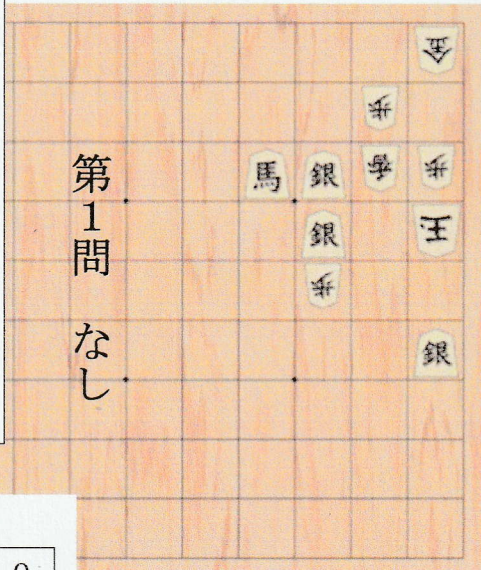 第1問　なし
金
歩
馬 銀 香 歩
銀 王
歩
銀